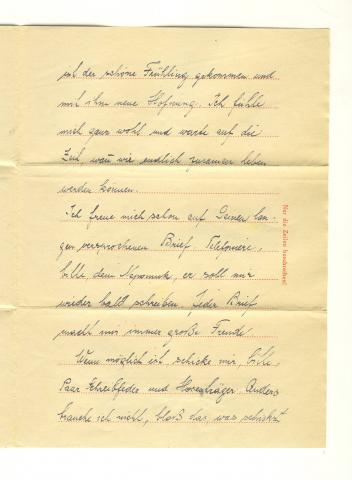 ist der schöne Frühling gekommen und
mit ihm neue Hofnung. Ich fühle
mich ganz wohl und warte auf die
Zeit, wan wir endlich zusamen leben
werden können.
Ich freue mich schon auf Deinen lan-
gen versprochenen Brief. Telefoniere,
bitte, dem Nepomuk, er soll mir
wieder balt schreiben. Jeder Brief
macht mir immer große Freude!
Wenn möglich ist, schicke mir, bitte,
Paar Schreibfeder und Hosenträger. Anders
brauche ich nicht, bloß das, was schickst
Nur die Zeilen beschreiben!